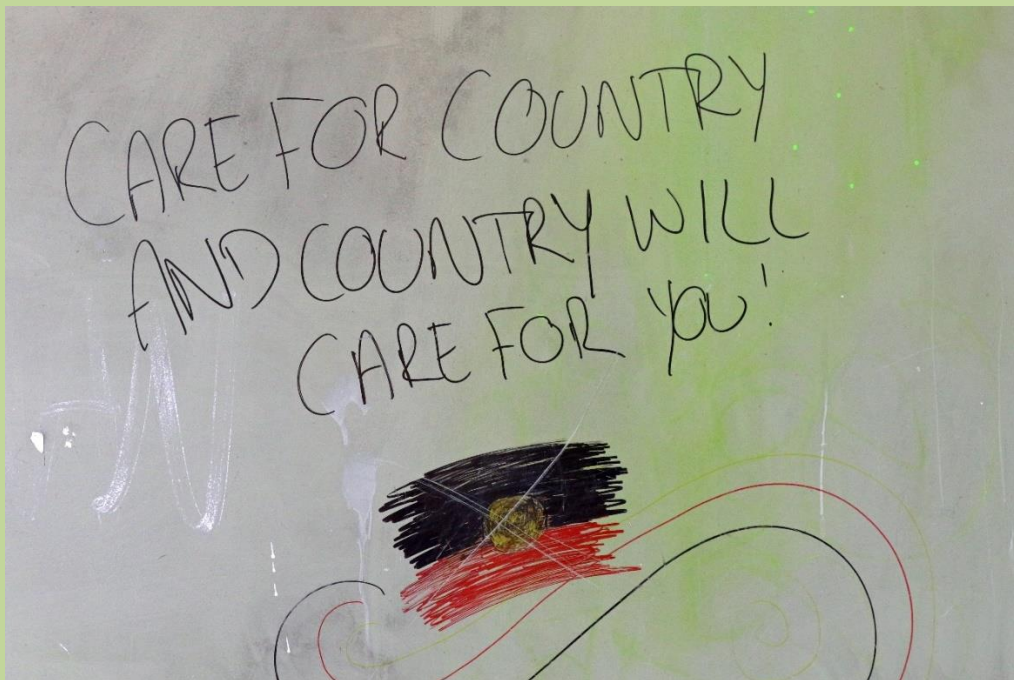 CARE FOR COUNTRY
AND COUNTRY WILL
CARE FOR YOU!